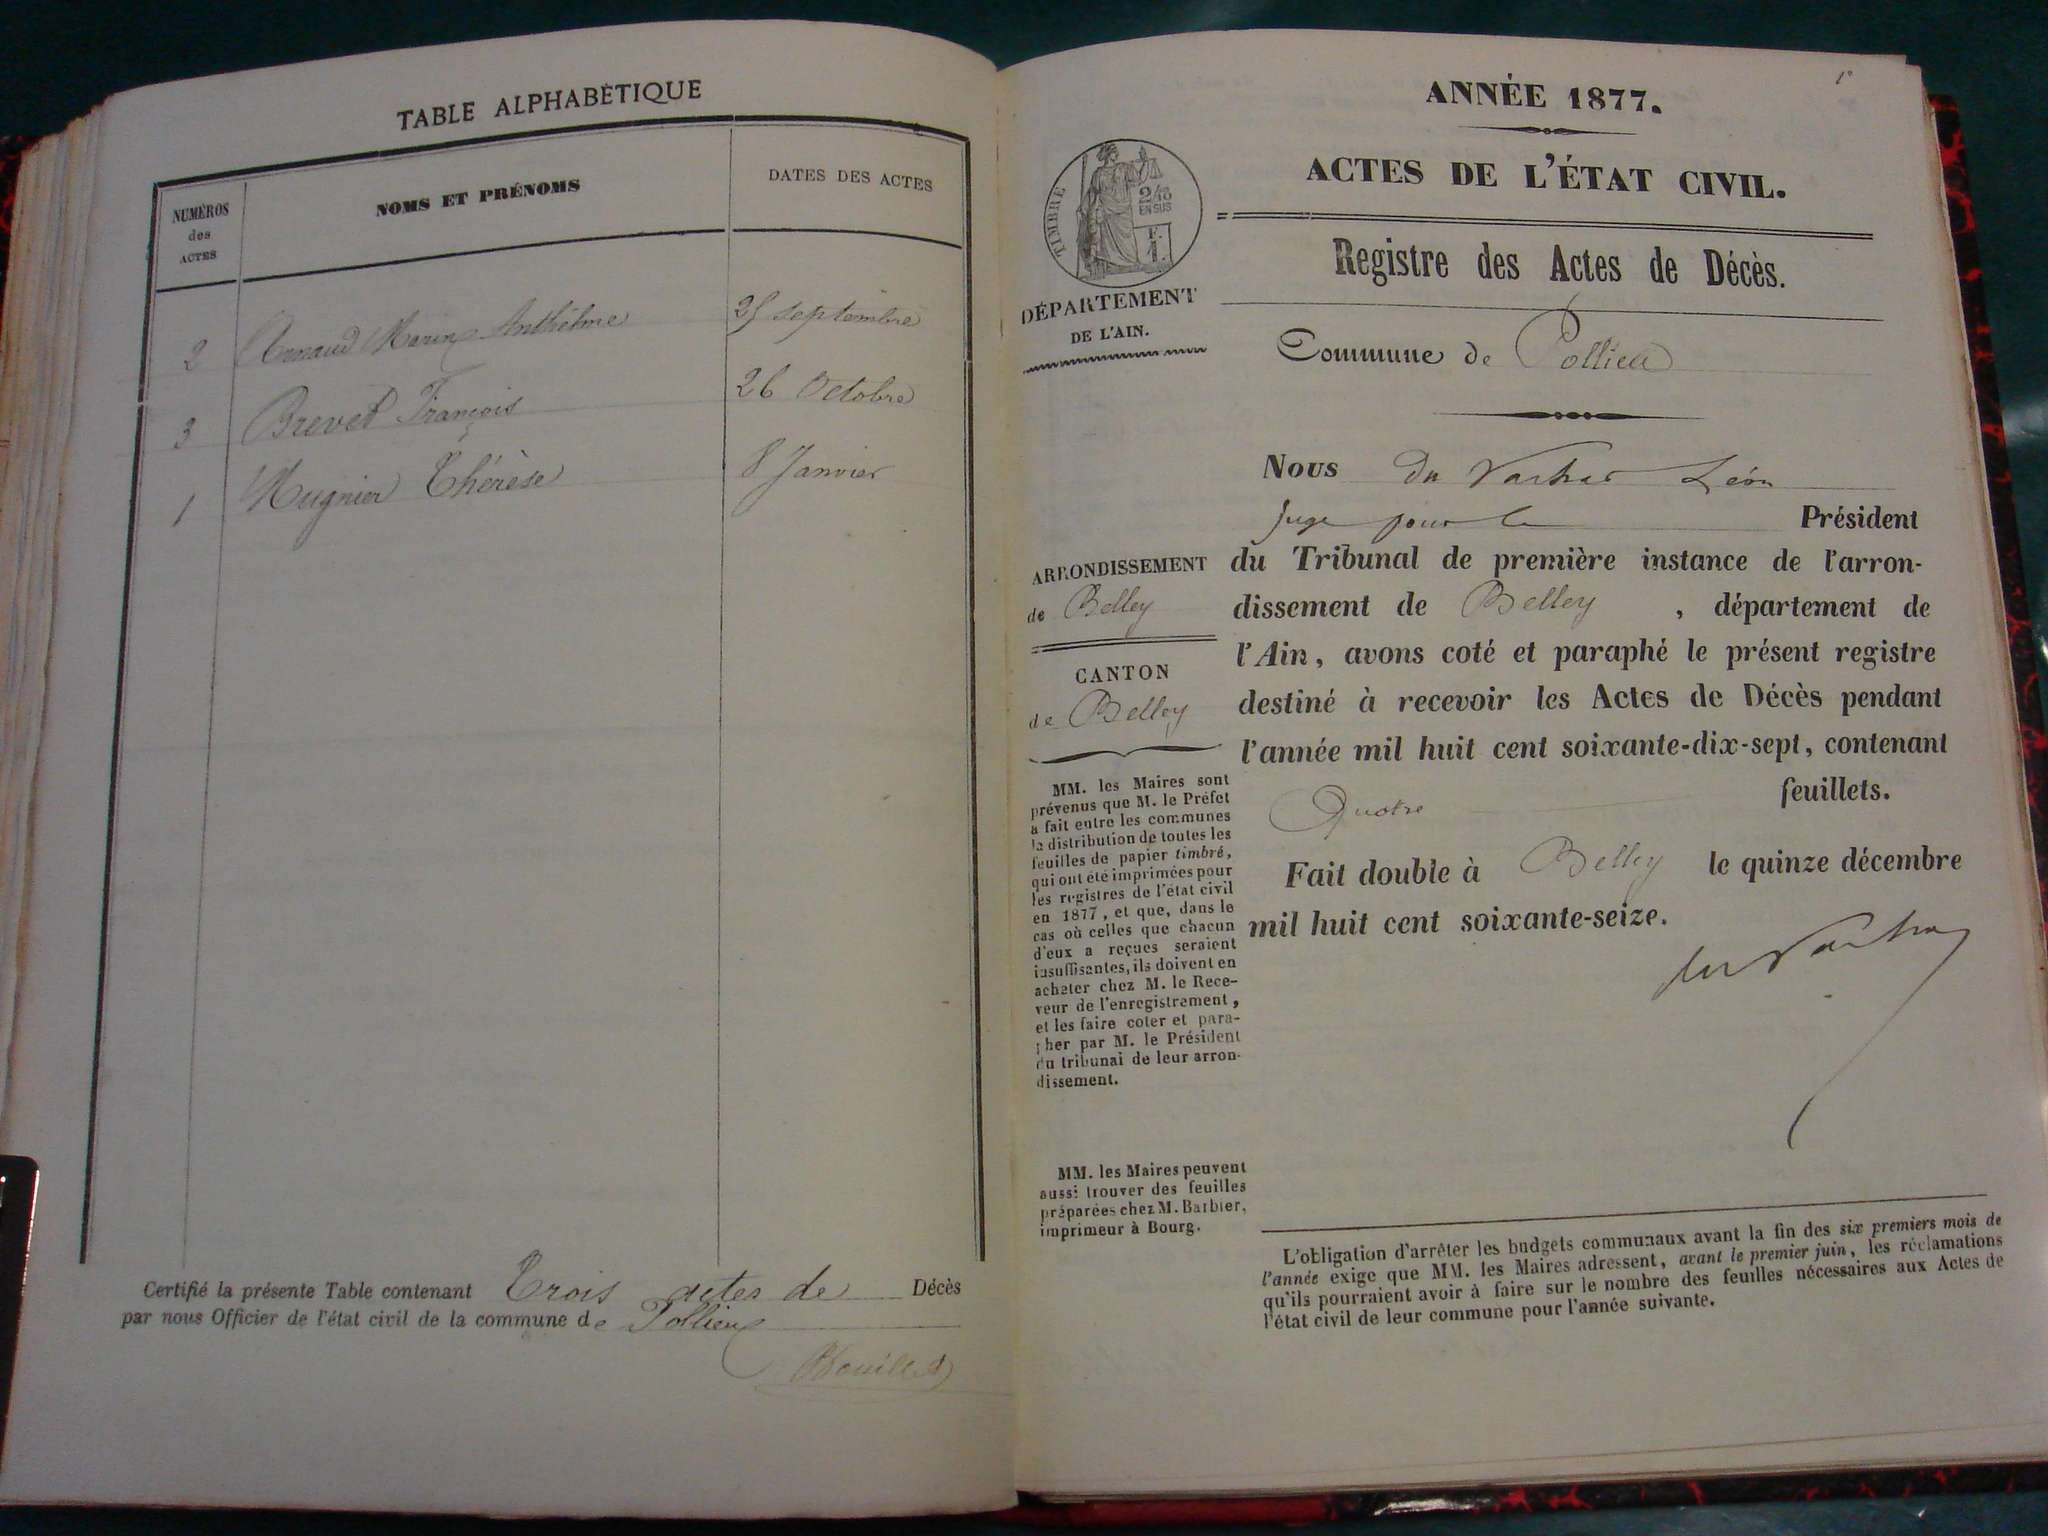 TABLE ALPHABÉTIQUE
NUMÉROS
des
ACTES
NOMS ET PRÉNOMS
DATES DES ACTES
2 Arnaud Marin Anthelme 25 septembre
3 Brevet François 26 Octobre
1 Mugnier Thérèse 8 Janvier
Certifié la présente Table contenant Trois actes de Décès
par nous Officier de l'état civil de la commune de Pollieu
1e
ANNÉE 1877.
ACTES DE L'ÉTAT CIVIL.
Registre des Actes de Décès.
TIMBRE
2/10
EN SUS
F.
1.
DÉPARTEMENT
DE L'AIN.
Commune de Pollieu
Nous du Léon
Juge pour le Président
du Tribunal de première instance de l'arron-
dissement de Belley , département de
l'Ain, avons coté et paraphé le présent registre
destiné à recevoir les Actes de Décès pendant
l'année mil huit cent soixante-dix-sept, contenant
Quatre feuillets.
Fait double à Belley le quinze décembre
mil huit cent soixante-seize.
ARRONDISSEMENT
de Belley
CANTON
de Belley
MM. les Maires sont
prévenus que M. le Préfet
a fait entre les communes
la distribution de toutes les
feuilles de papier timbré,
qui ont été imprimées pour
les registres de l'état civil
en 1877, et que, dans le
cas où celles que chacun
d'eux a reçues seraient
insuffisantes, ils doivent en
acheter chez M. le Rece-
veur de l'enregistrement,
et les faire coter et para-
pher par M. le Président
du tribunal de leur arron-
dissement.
MM. les Maires peuvent
aussi trouver des feuilles
préparées chez M. Barbier,
imprimeur à Bourg.
L'obligation d'arrêter les budgets communaux avant la fin des six premiers mois de
l'année exige que MM. les Maires adressent, avant le premier juin, les réclamations
qu'ils pourraient avoir à faire sur le nombre des feuilles nécessaires aux Actes de
l'état civil de leur commune pour l'année suivante.